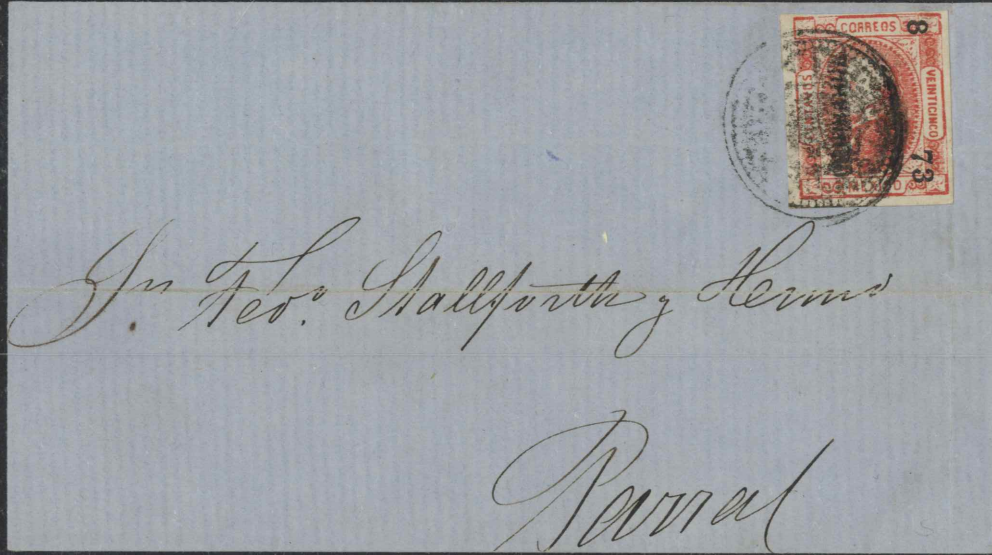 CORREOS
8
VEINTICINCO
73
MEXICO
Sn Fedo. Stallforth y Hermo
Parral